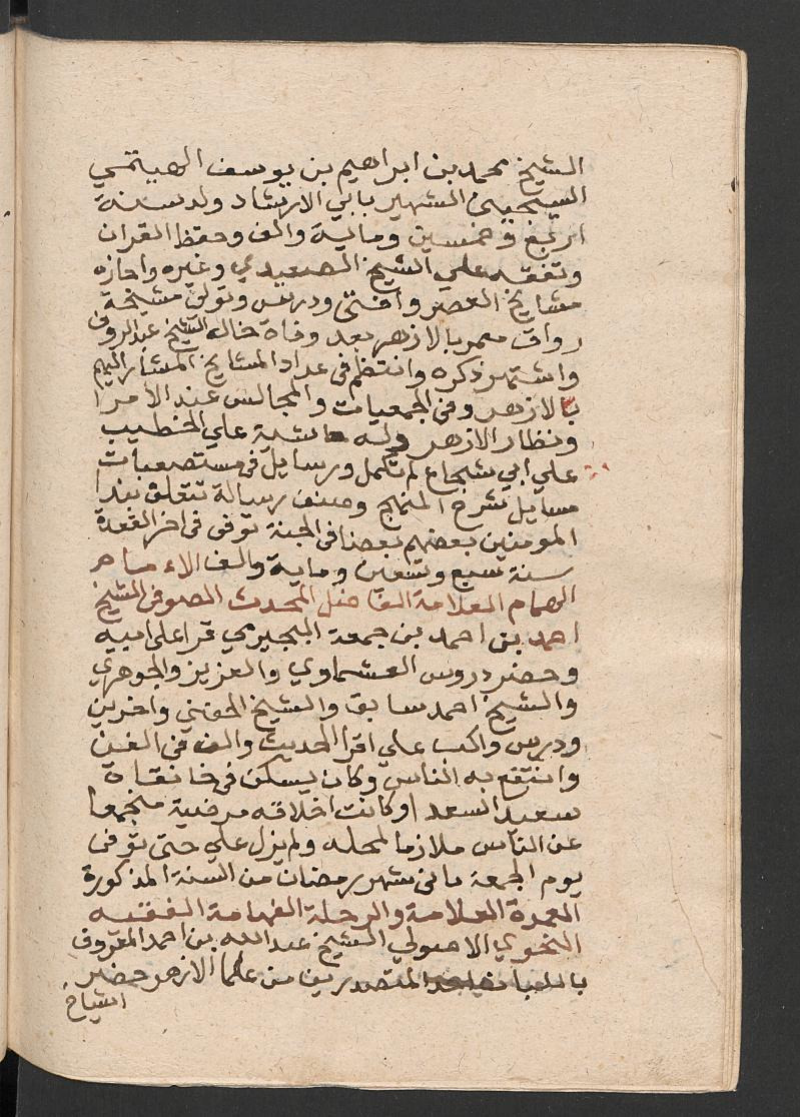 الشيخ محمد بن ابراهيم بن يوسف الهيتمي
السجيني الشهير بابي الارشاد ولد سنة
اربع وخمسين وماية والف وحفظ القران
وتفقه علي الشيخ الصعيدي وغيره واجازه
مشايخ العصر وافتى ودرس وتولى مشيخة
رواق معمر بالازهر بعد وفاة خاله الشيخ عبد الروف
واشتهر ذكره وانتظم فى عداد المشايخ المشار اليهم
بالازهر وفى الجمعيات والمجالس عند الامرا
ونظار الازهر وله حاشية علي الخطيب
علي ابي شجاع لم تكمل ورسايل فى مستصعبات
مسايل بشرح المنهج وصنف رسالة تتعلق بندا
المومنين بعضهم بعضا فى الجنة توفى فى اخر القعدة
سنة سبع وتسعين وماية والف الاء مام
الهمام العلامة الفاضل المحدث الصوفى الشيخ
احمد بن احمد بن جمعة البجيرمي قرا على ابيه
وحضر دروس العشماوي والعزيز والجوهري
والشيخ احمد سابق والشيخ الحفني واخرين
ودرس واكب علي اقرا الحديث والف فى الفن
وانتفع به الناس وكان يسكن فى خانقاة
سعيد السعدا وكانت اخلاقه مرضية منجمعا
عن الناس ملازما لمحله ولم يزل علي حتى توفى
يوم الجمعة ثانى شهر رمضان من السنة المذكورة
العمدة العلامة والرحلة الفهامة الفقيه
النحوي الاصولي الشيخ عبد الله بن احمد المعروف
باللبان المتصدرين من علما الازهر حضر
اشياخ